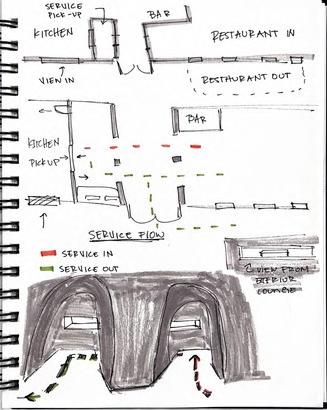 SERVICE
PICK-UP
BAR
KITCHEN
RESTAURANT IN
VIEW IN
RESTAURANT OUT
BAR
KITCHEN
PICKUP
SERVICE FLOW
SERVICE IN
SERVICE OUT
VIEW FROM
EXTERIOR
LOUNGE